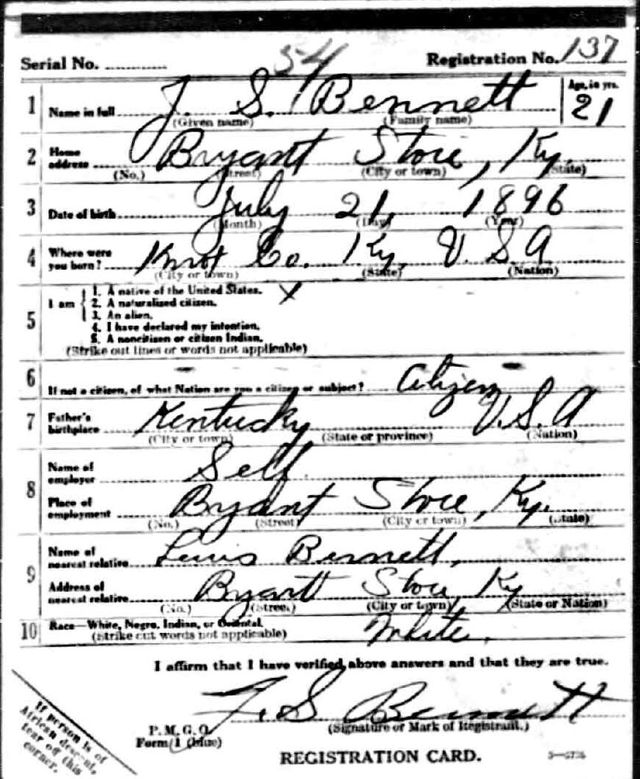 54
Serial No. Registration No. 137
1 Name in full J. S. Bennett Age, in yrs. 21
(Given name) (Family name)
2 Home address Bryant Store, Ky.
(No.) (Street) (City or town) (State)
3 Date of birth July 21, 1896
(Month) (Day) (Year)
4 Where were you born? Knot Co. Ky. U.S.A
(City or town) (State) (Nation)
5 I am
1. A native of the United States. x
2. A naturalized citizen.
3. An alien.
4. I have declared my intention.
5. A noncitizen or citizen Indian.
(Strike out lines or words not applicable)
6 If not a citizen, of what Nation are you a citizen or subject? Citizen
7 Father's birthplace Kentucky U.S.A
(City or town) (State or province) (Nation)
8 Name of employer Self.
Place of employment Bryant Store, Ky.
(No.) (Street) (City or town) (State)
9 Name of nearest relative Lewis Bennett,
Address of nearest relative Byartt Store, Ky
(No.) (Street) (City or town) (State or Nation)
10 Race—White, Negro, Indian, or Oriental. White.
(Strike out words not applicable)
I affirm that I have verified above answers and that they are true.
J. S Bennett
P. M. G. O. (Signature or Mark of Registrant.)
Form 1 (blue)
REGISTRATION CARD.
If person is of
African descent,
tear off this
corner.